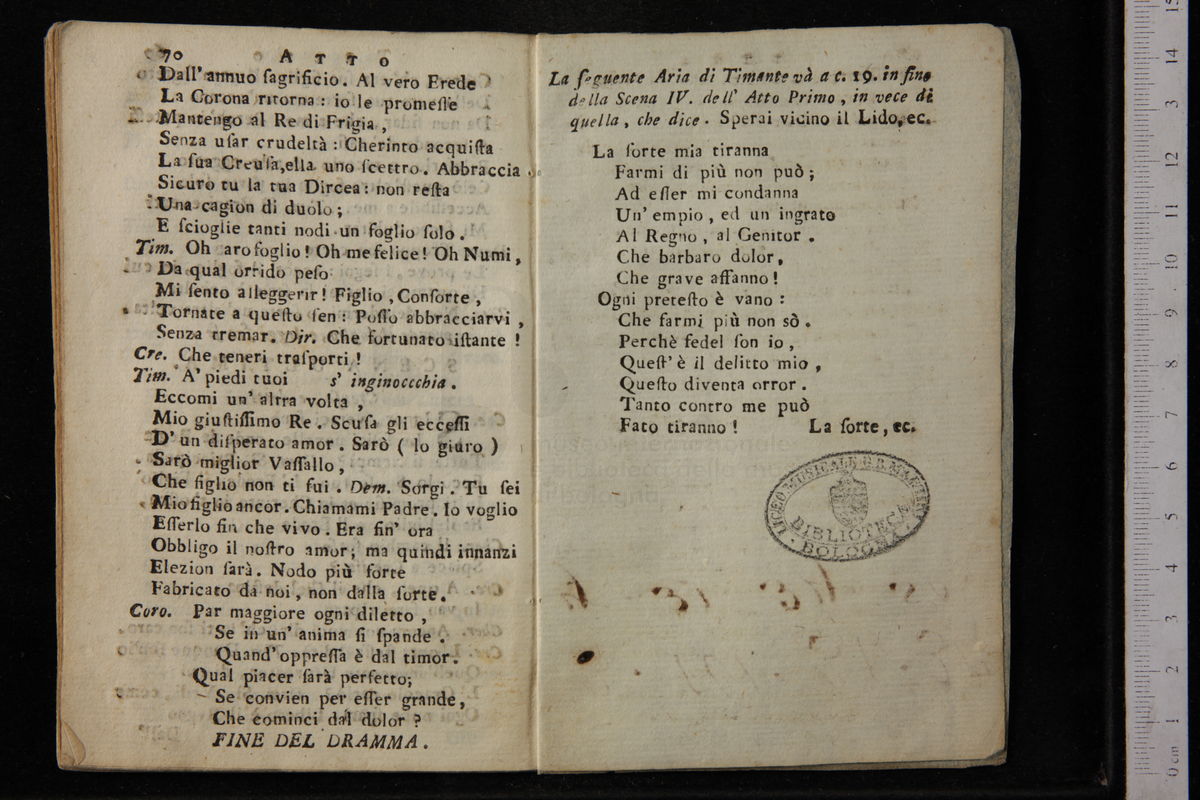 70 ATTO
Dall' annuo ſagrificio. Al vero Erede
La Corona ritorna: io le promeſſe
Mantengo al Re di Frigia,
Senza uſar crudeltà: Cherinto acquiſta
La ſua Creuſa, ella uno ſcettro. Abbraccia
Sicuro tu la tua Dircea: non reſta
Una cagion di duolo;
E ſcioglie tanti nodi un foglio ſolo.
Tim. Oh aro foglio! Oh me felice! Oh Numi,
Da qual orrido peſo
Mi ſento alleggerir! Figlio, Conſorte,
Tornate a queſto ſen: Poſſo abbracciarvi,
Senza tremar. Dir. Che fortunato iſtante!
Cre. Che teneri traſporti!
Tim. A' piedi tuoi s' inginoccchia.
Eccomi un' altra volta,
Mio giuſtiſſimo Re. Scuſa gli ecceſſi
D' un diſperato amor. Sarò (lo giuro)
Sarò miglior Vaſſallo,
Che figlio non ti fui. Dem. Sorgi. Tu ſei
Mio figlio ancor. Chiamami Padre. Io voglio
Eſſerlo fin che vivo. Era fin' ora
Obbligo il noſtro amor; ma quindi innanzi
Elezion ſarà. Nodo più forte
Fabricato da noi, non dalla ſorte.
Coro. Par maggiore ogni diletto,
Se in un' anima ſi ſpande.
Quand' oppreſſa è dal timor.
Qual piacer ſarà perfetto;
Se convien per eſſer grande,
Che cominci dal dolor?
FINE DEL DRAMMA.
La ſeguente Aria di Timante và a c. 19. in fine
della Scena IV. dell' Atto Primo, in vece di
quella, che dice. Sperai vicino il Lido, ec.
La ſorte mia tiranna
Farmi di più non può;
Ad eſſer mi condanna
Un' empio, ed un ingrato
Al Regno, al Genitor.
Che barbaro dolor,
Che grave affanno!
Ogni preteſto è vano:
Che farmi più non sò.
Perchè fedel ſon io,
Queſt' è il delitto mio,
Queſto diventa orror.
Tanto contro me può
Fato tiranno! La ſorte, ec.
LICEO MUSICALE G.B. MARTINI
BIBLIOTECA
BOLOGNA